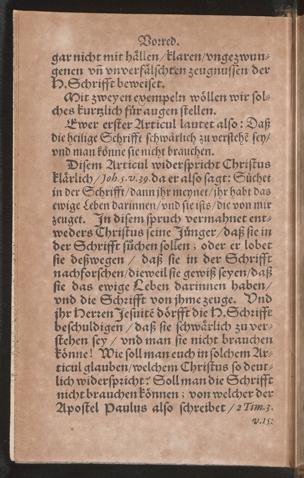 Vorred.
gar nicht mit hällen/klaren/vngezwun-
genen vñ vnverfälschten zeugnussen der
H. Schrifft beweiset.
Mit zweyen exempeln wöllen wir sol-
ches kurtzlich für augen stellen.
Ewer erster Articul lautet also: Daß
die heilige Schrifft schwärlich zu verstehē sey/
vnd man könne sie nicht brauchen.
Disem Articul widerspricht Christus
klärlich/Joh. 5. v. 39. da er also sagt: Suchet
in der Schrifft/dann jhr meynet/jhr habt das
ewige Leben darinnen/vnd sie ists/die von mir
zeuget. In disem spruch vermahnet ent-
weders Christus seine Jünger/daß sie in
der Schrifft süchen sollen; oder er lobet
sie deßwegen/daß sie in der Schrifft
nachforschen/dieweil sie gewiß seyen/daß
sie das ewige Leben darinnen haben/
vnd die Schrifft von jhme zeuge. Vnd
jhr Herren Jesuitē dörfft die H. Schrifft
beschuldigen/daß sie schwärlich zu ver-
stehen sey/vnd man sie nicht brauchen
könne! Wie soll man euch in solchem Ar-
ticul glauben/welchem Christus so deut-
lich widerspricht? Soll man die Schrifft
nicht brauchen können; von welcher der
Apostel Paulus also schreibet/2 Tim. 3.
v. 15: